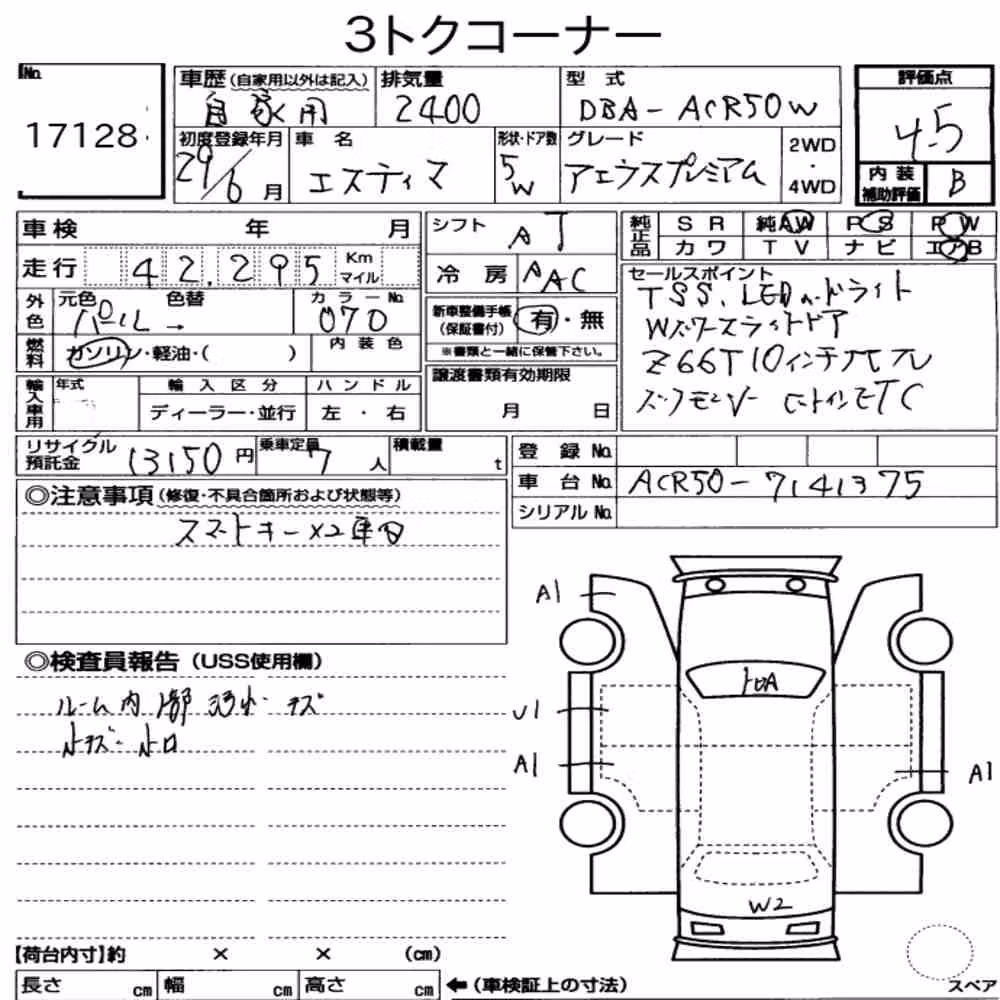 3トクコーナー
No.
17128
車歴(自家用以外は記入)
自家用
排気量
2400
型 式
DBA-ACR50W
評価点
4.5
初度登録年月
29/6月
車 名
エスティマ
形状・ドア数
5W
グレード
アエラスプレミアム
2WD・4WD
内装補助評価
B
車検 年 月
シフト
AT
純正品
SR 純AW PS PW
カワ TV ナビ エアB
走行 42,295 Km マイル
冷房
AAC
セールスポイント
TSS. LEDヘッドライト
Wパワースライドドア
Z66T 10インチナビ フル
バックモニター ビルトインETC
外色
元色
パール
色替
→
カラーNo.
070
新車整備手帳(保証書付)
有・無
※書類と一緒に保管下さい。
燃料
ガソリン・軽油・( )
内装色
輸入車用
年式
輸入区分
ディーラー・並行
ハンドル
左・右
譲渡書類有効期限
月 日
リサイクル預託金
13150円
乗車定員
7人
積載量
t
登録 No.
車台 No. ACR50-7141375
シリアル No.
◎注意事項(修復・不具合箇所および状態等)
スマートキー×2車内
◎検査員報告(USS使用欄)
ルーム内
キズ
小キズ・小凹
A1
U1
A1
A1
W2
【荷台内寸】約 × × (cm)
長さ cm 幅 cm 高さ cm
←(車検証上の寸法)
スペア